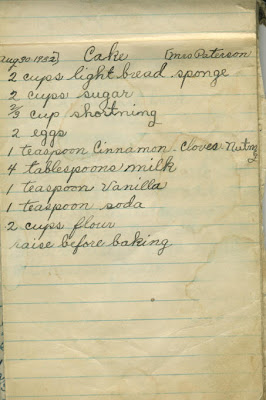 Aug 30 1932] Cake [Mrs Paterson
2 cups light bread sponge
2 cups sugar
2/3 cup shortning
2 eggs
1 teaspoon Cinnamon - Cloves Nutmg
4 tablespoons milk
1 teaspoon Vanilla
1 teaspoon soda
2 cups flour
raise before baking